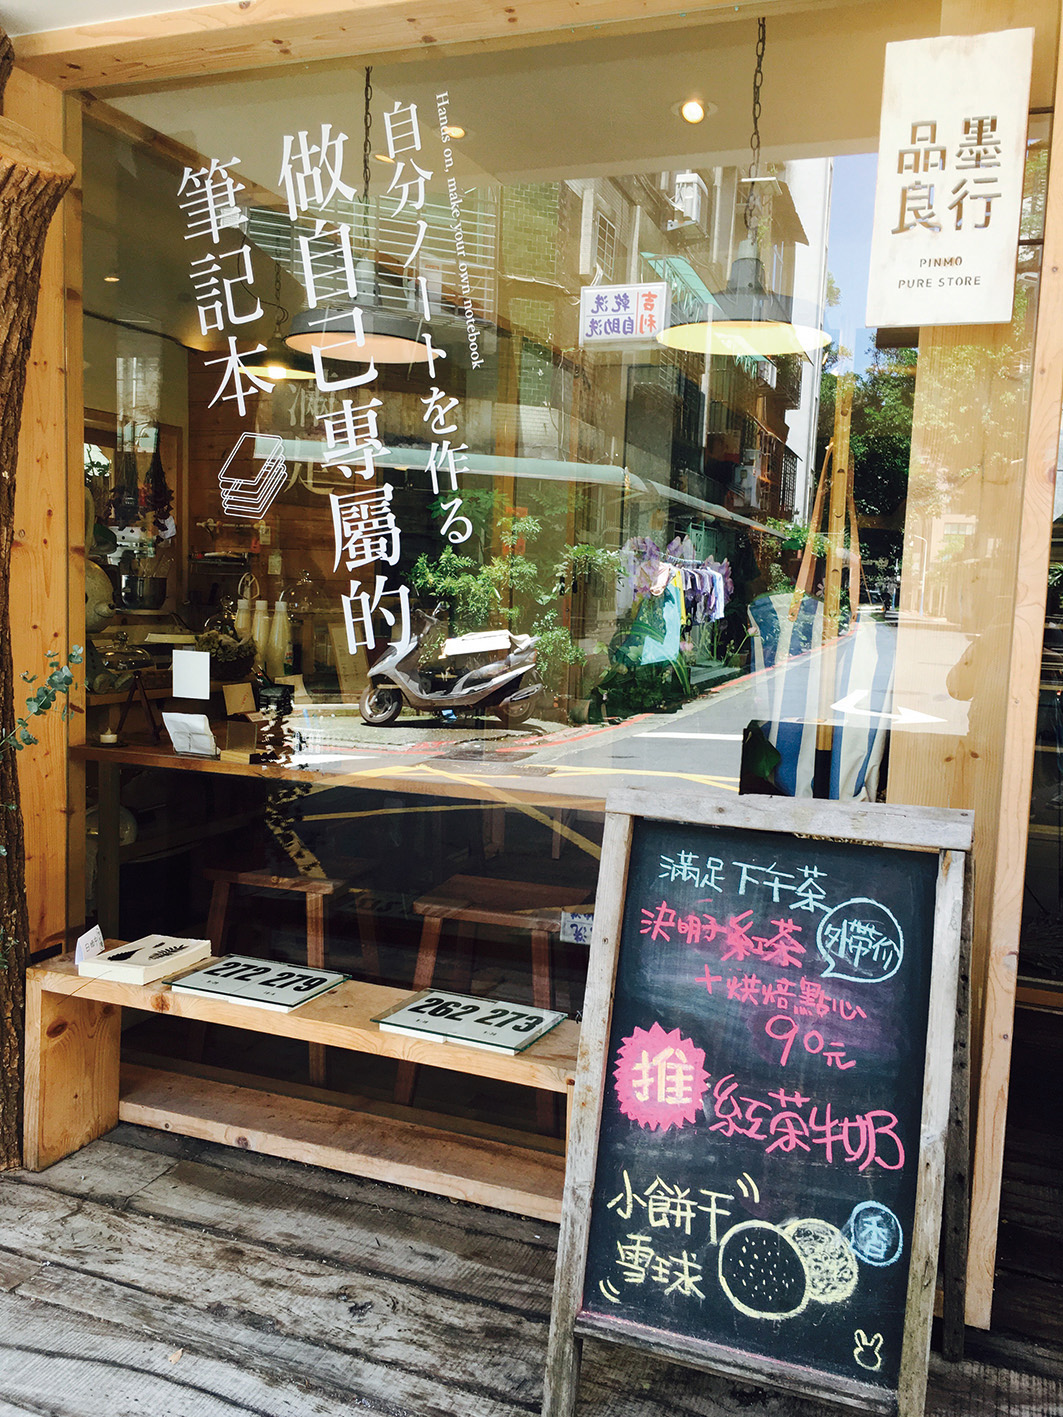 墨行
品良
PINMO
PURE STORE
Hands on, make your own notebook
自分ノートを作る
做自己專屬的
筆記本
吉利
乾洗
自助洗
272 279
262 273
滿足下午茶
決明子紅茶
外帶
+烘焙點心
90元
推
紅茶牛奶
小餅干
雪球
香